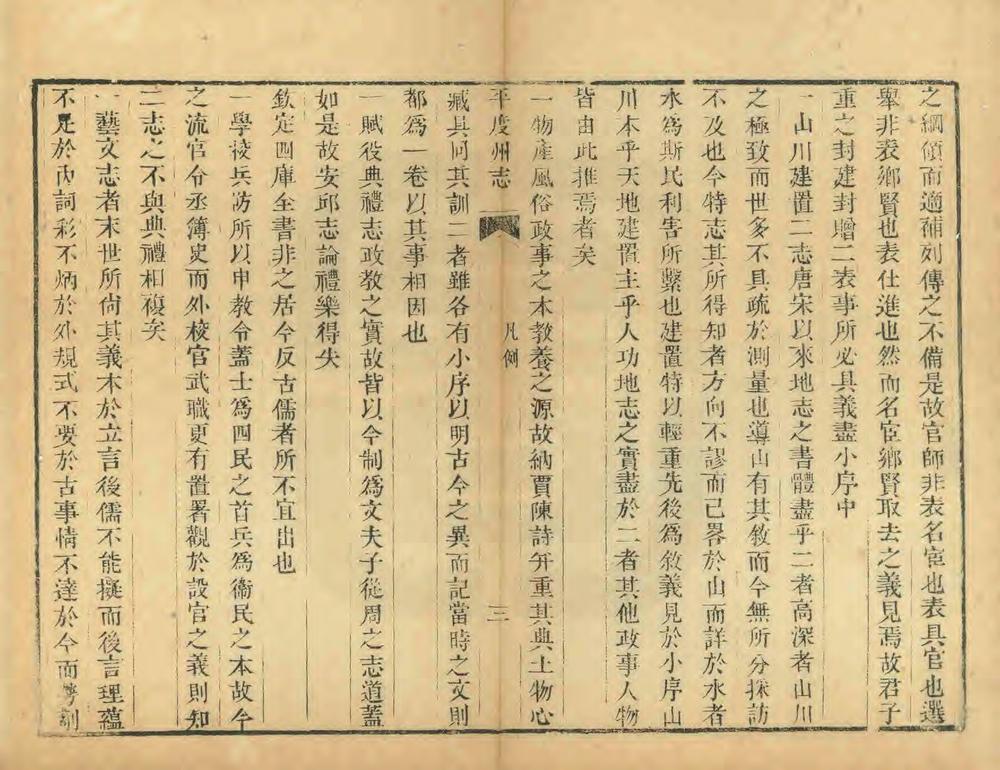 之綱領而適補列傳之不備是故官師非表名宦也表具官也選
舉非表鄉賢也表仕進也然而名宦鄉賢取去之義見焉故君子
重之封建封贈二表事所必具義盡小序中
一山川建置二志唐宋以來地志之書體盡乎二者高深者山川
之極致而世多不具疏於測量也導山有其敘而今無所分探訪
不及也今特志其所得知者方向不謬而已畧於山而詳於水者
水爲斯民利害所繫也建置特以輕重先後爲敘義見於小序山
川本乎天地建置主乎人功地志之實盡於二者其他政事人物
皆由此推焉者矣
一物產風俗政事之本教養之源故納賈陳詩幷重其典土物心
平度州志
凡例
三
臧具同其訓二者雖各有小序以明古今之異而記當時之文則
都爲一卷以其事相因也
一賦役典禮志政教之實故皆以今制爲文夫子從周之志道蓋
如是故安邱志論禮樂得失
欽定四庫全書非之居今反古儒者所不宜出也
一學校兵防所以申教令蓋士爲四民之首兵爲衞民之本故今
之流官令丞簿史而外校官武職更有置署觀於設官之義則知
二志之不與典禮相複矣
一藝文志者末世所尙其義本於立言後儒不能擬而後言理蘊
不足於內詞彩不炳於外規式不要於古事情不達於今而